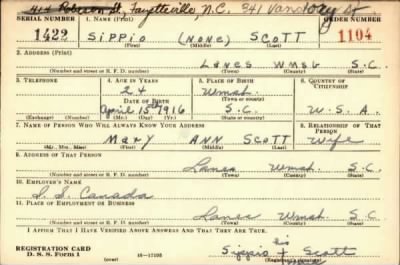 414 Robeson St, Fayetteville, N.C. 341 Vanstory St
SERIAL NUMBER 1. NAME (Print) ORDER NUMBER
1422 Sippio (NONE) Scott 1104
(First) (Middle) (Last)
2. ADDRESS (Print)
Lanes Wmsb S.C.
(Number and street or R. F. D. number) (Town) (County) (State)
3. TELEPHONE 4. AGE IN YEARS 5. PLACE OF BIRTH 6. COUNTRY OF CITIZENSHIP
24 Wmsb.
DATE OF BIRTH (Town or county)
April 1916 S.C. U.S.A.
(Exchange) (Number) (Mo.) (Day) (Yr.) (State or country)
7. NAME OF PERSON WHO WILL ALWAYS KNOW YOUR ADDRESS 8. RELATIONSHIP OF THAT PERSON
Mary Ann Scott Wife
(Mr., Mrs., Miss) (First) (Middle) (Last)
9. ADDRESS OF THAT PERSON
Lanes Wmsb. S.C.
(Number and street or R. F. D. number) (Town) (County) (State)
10. EMPLOYER'S NAME
S. S. Canada
11. PLACE OF EMPLOYMENT OR BUSINESS
Lanes Wmsb. S.C.
(Number and street or R. F. D. number) (Town) (County) (State)
I AFFIRM THAT I HAVE VERIFIED ABOVE ANSWERS AND THAT THEY ARE TRUE.
his
REGISTRATION CARD Sippio Scott
D. S. S. Form 1 (over) 16—17105 mark